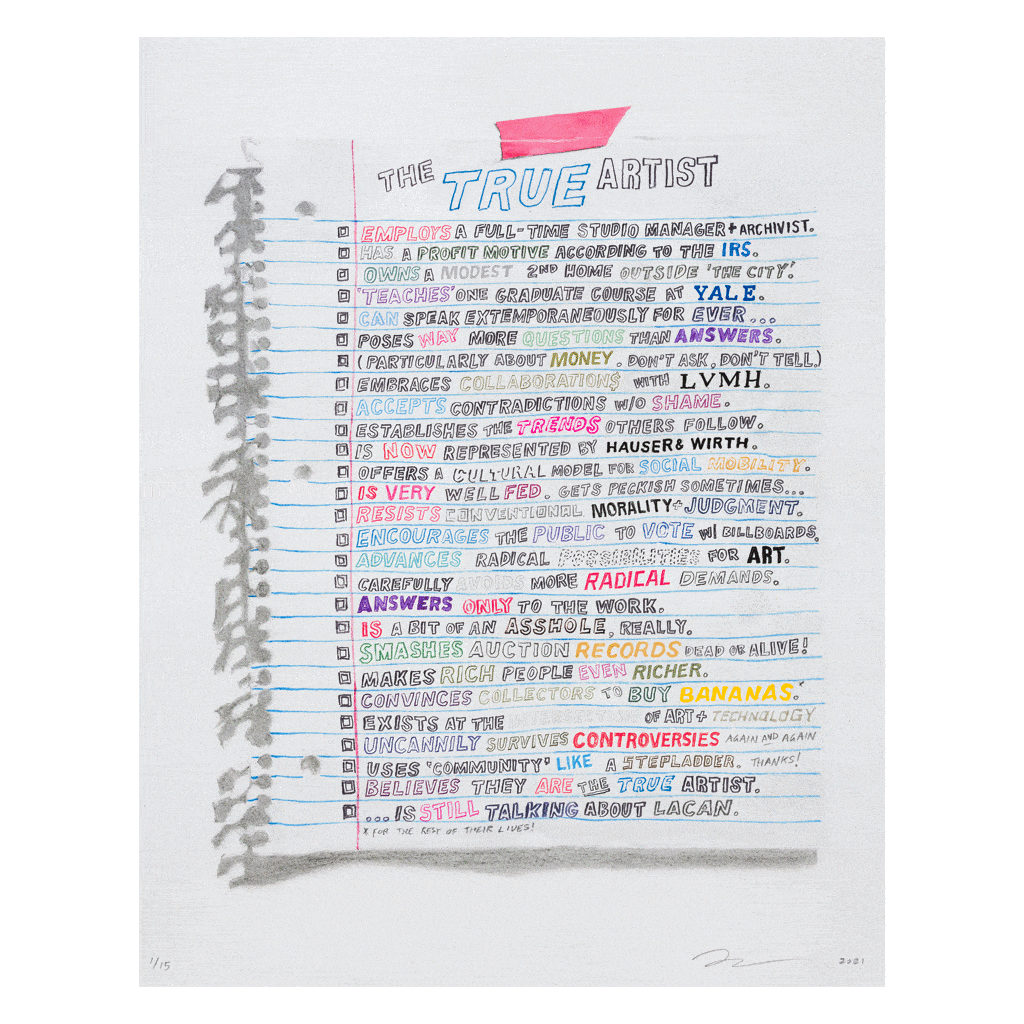 THE TRUE ARTIST
EMPLOYS A FULL-TIME STUDIO MANAGER + ARCHIVIST.
HAS A PROFIT MOTIVE ACCORDING TO THE IRS.
OWNS A MODEST 2ND HOME OUTSIDE 'THE CITY'.
'TEACHES' ONE GRADUATE COURSE AT YALE.
CAN SPEAK EXTEMPORANEOUSLY FOR EVER...
POSES WAY MORE QUESTIONS THAN ANSWERS.
(PARTICULARLY ABOUT MONEY. DON'T ASK, DON'T TELL)
EMBRACES COLLABORATION$ WITH LVMH.
ACCEPTS CONTRADICTIONS W/O SHAME.
ESTABLISHES THE TRENDS OTHERS FOLLOW.
IS NOW REPRESENTED BY HAUSER & WIRTH.
OFFERS A CULTURAL MODEL FOR SOCIAL MOBILITY.
IS VERY WELL FED. GETS PECKISH SOMETIMES...
RESISTS CONVENTIONAL MORALITY + JUDGMENT.
ENCOURAGES THE PUBLIC TO VOTE W/ BILLBOARDS.
ADVANCES RADICAL POSSIBILITIES FOR ART.
CAREFULLY AVOIDS MORE RADICAL DEMANDS.
ANSWERS ONLY TO THE WORK.
IS A BIT OF AN ASSHOLE, REALLY.
SMASHES AUCTION RECORDS DEAD OR ALIVE!
MAKES RICH PEOPLE EVEN RICHER.
CONVINCES COLLECTORS TO BUY BANANAS.*
EXISTS AT THE INTERSECTION OF ART + TECHNOLOGY
UNCANNILY SURVIVES CONTROVERSIES AGAIN AND AGAIN
USES 'COMMUNITY' LIKE A STEPLADDER. THANKS!
BELIEVES THEY ARE THE TRUE ARTIST.
...IS STILL TALKING ABOUT LACAN.
* FOR THE REST OF THEIR LIVES!
1/15
2021